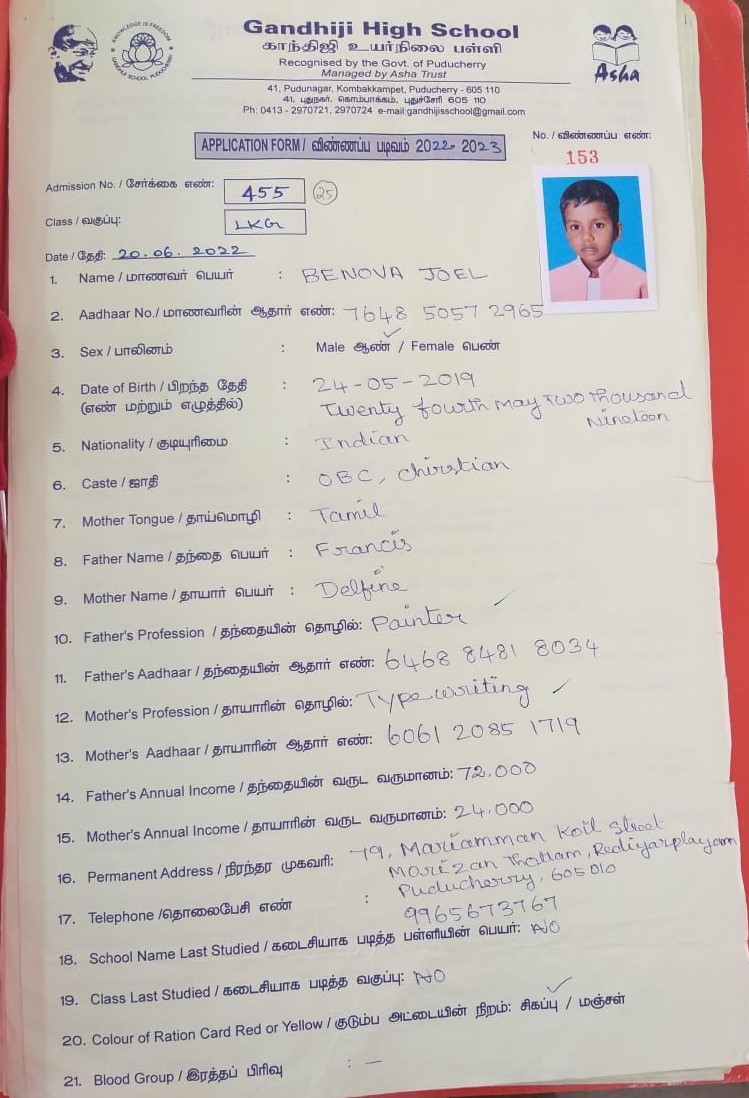 Gandhiji High School
காந்திஜி உயர்நிலை பள்ளி
Recognised by the Govt. of Puducherry
Managed by Asha Trust
KNOWLEDGE IS FREEDOM
GANDHIJI SCHOOL PUDUCHERRY
Asha
41, Pudunagar, Kombakkampet, Puducherry - 605 110
41, புதுநகர், கொம்பாக்கம், புதுச்சேரி 605 110
Ph: 0413 - 2970721, 2970724 e-mail:gandhijisschool@gmail.com
APPLICATION FORM / விண்ணப்ப படிவம் 2022-2023
No. / விண்ணப்ப எண்:
153
Admission No. / சேர்க்கை எண்: 455 25
Class / வகுப்பு: LKG
Date / தேதி: 20.06.2022
1. Name / மாணவர் பெயர் : BENOVA JOEL
2. Aadhaar No./ மாணவரின் ஆதார் எண்: 7648 5057 2965
3. Sex / பாலினம் : Male ஆண் / Female பெண்
4. Date of Birth / பிறந்த தேதி : 24-05-2019
(எண் மற்றும் எழுத்தில்) Twenty fourth May Two thousand
Nineteen
5. Nationality / குடியுரிமை : Indian
6. Caste / ஜாதி : OBC, Chirstian
7. Mother Tongue / தாய்மொழி : Tamil
8. Father Name / தந்தை பெயர் : Francis
9. Mother Name / தாயார் பெயர் : Delfine
10. Father's Profession / தந்தையின் தொழில்: Painter
11. Father's Aadhaar / தந்தையின் ஆதார் எண்: 6468 8481 8034
12. Mother's Profession / தாயாரின் தொழில்: Typewriting
13. Mother's Aadhaar / தாயாரின் ஆதார் எண்: 6061 2085 1719
14. Father's Annual Income / தந்தையின் வருட வருமானம்: 72,000
15. Mother's Annual Income / தாயாரின் வருட வருமானம்: 24,000
16. Permanent Address / நிரந்தர முகவரி: 79, Mariamman Koil Street
Marizan Thottam, Rediyarplayam
Puducherry, 605010
17. Telephone /தொலைபேசி எண் : 9965673767
18. School Name Last Studied / கடைசியாக படித்த பள்ளியின் பெயர்: NO
19. Class Last Studied / கடைசியாக படித்த வகுப்பு: NO
20. Colour of Ration Card Red or Yellow / குடும்ப அட்டையின் நிறம்: சிகப்பு / மஞ்சள்
21. Blood Group / இரத்தப் பிரிவு : —